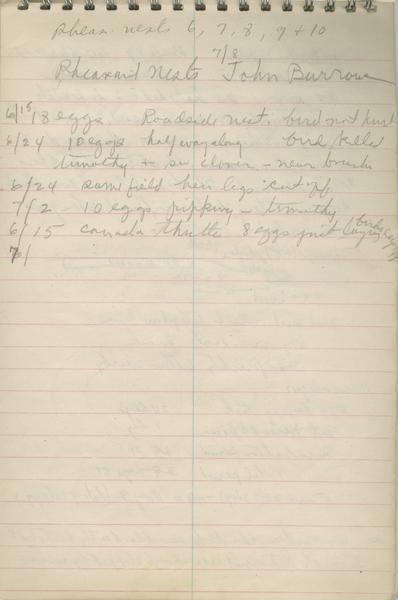 pheas. nests 6, 7, 8, 9 + 10
7/8
Pheasant Nests John Burrows
6/15 18 eggs Roadside nest. bird not hurt
6/24 10 eggs half way along bird killed
timothy + sw clover - near brush
6/24 same field hen legs cut off
7/2 10 eggs pipping - timothy
6/15 canada thistle 8 eggs just laying birds
7/